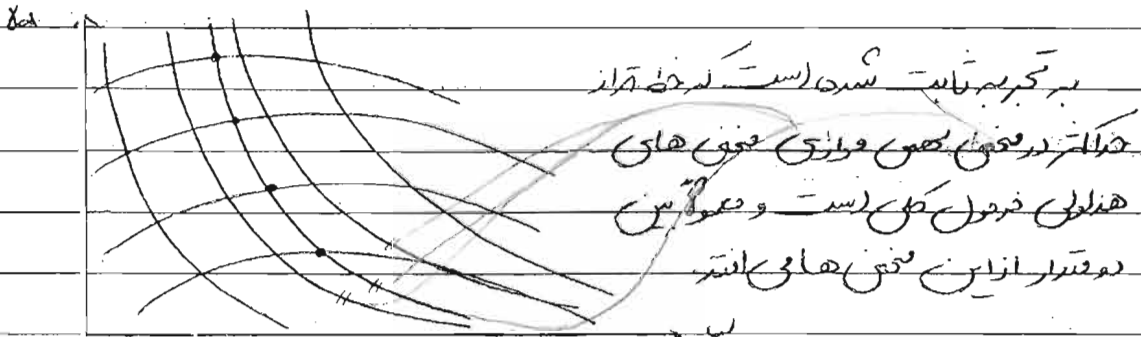 γd
به تجربه ثابت شده است که خط تراز
حداکثر در منحنی بهمی موازی منحنی های
هذلولی فرمول کلی است و معمولاً بین
دو مقدار از این منحنی ها می افتد